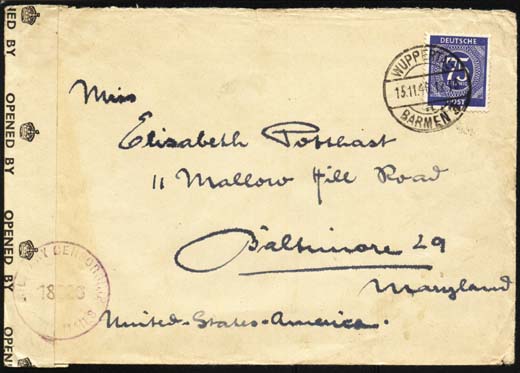 OPENED BY
OPENED BY
OPENED BY
OPENED BY
DEUTSCHE
75
POST
WUPPERTAL
15.11.46
BARMEN
Miss
Elizabeth Potthast
11 Mallow Hill Road
Baltimore 29
Maryland
United-States-America.
MILITARY CENSORSHIP
MAILS